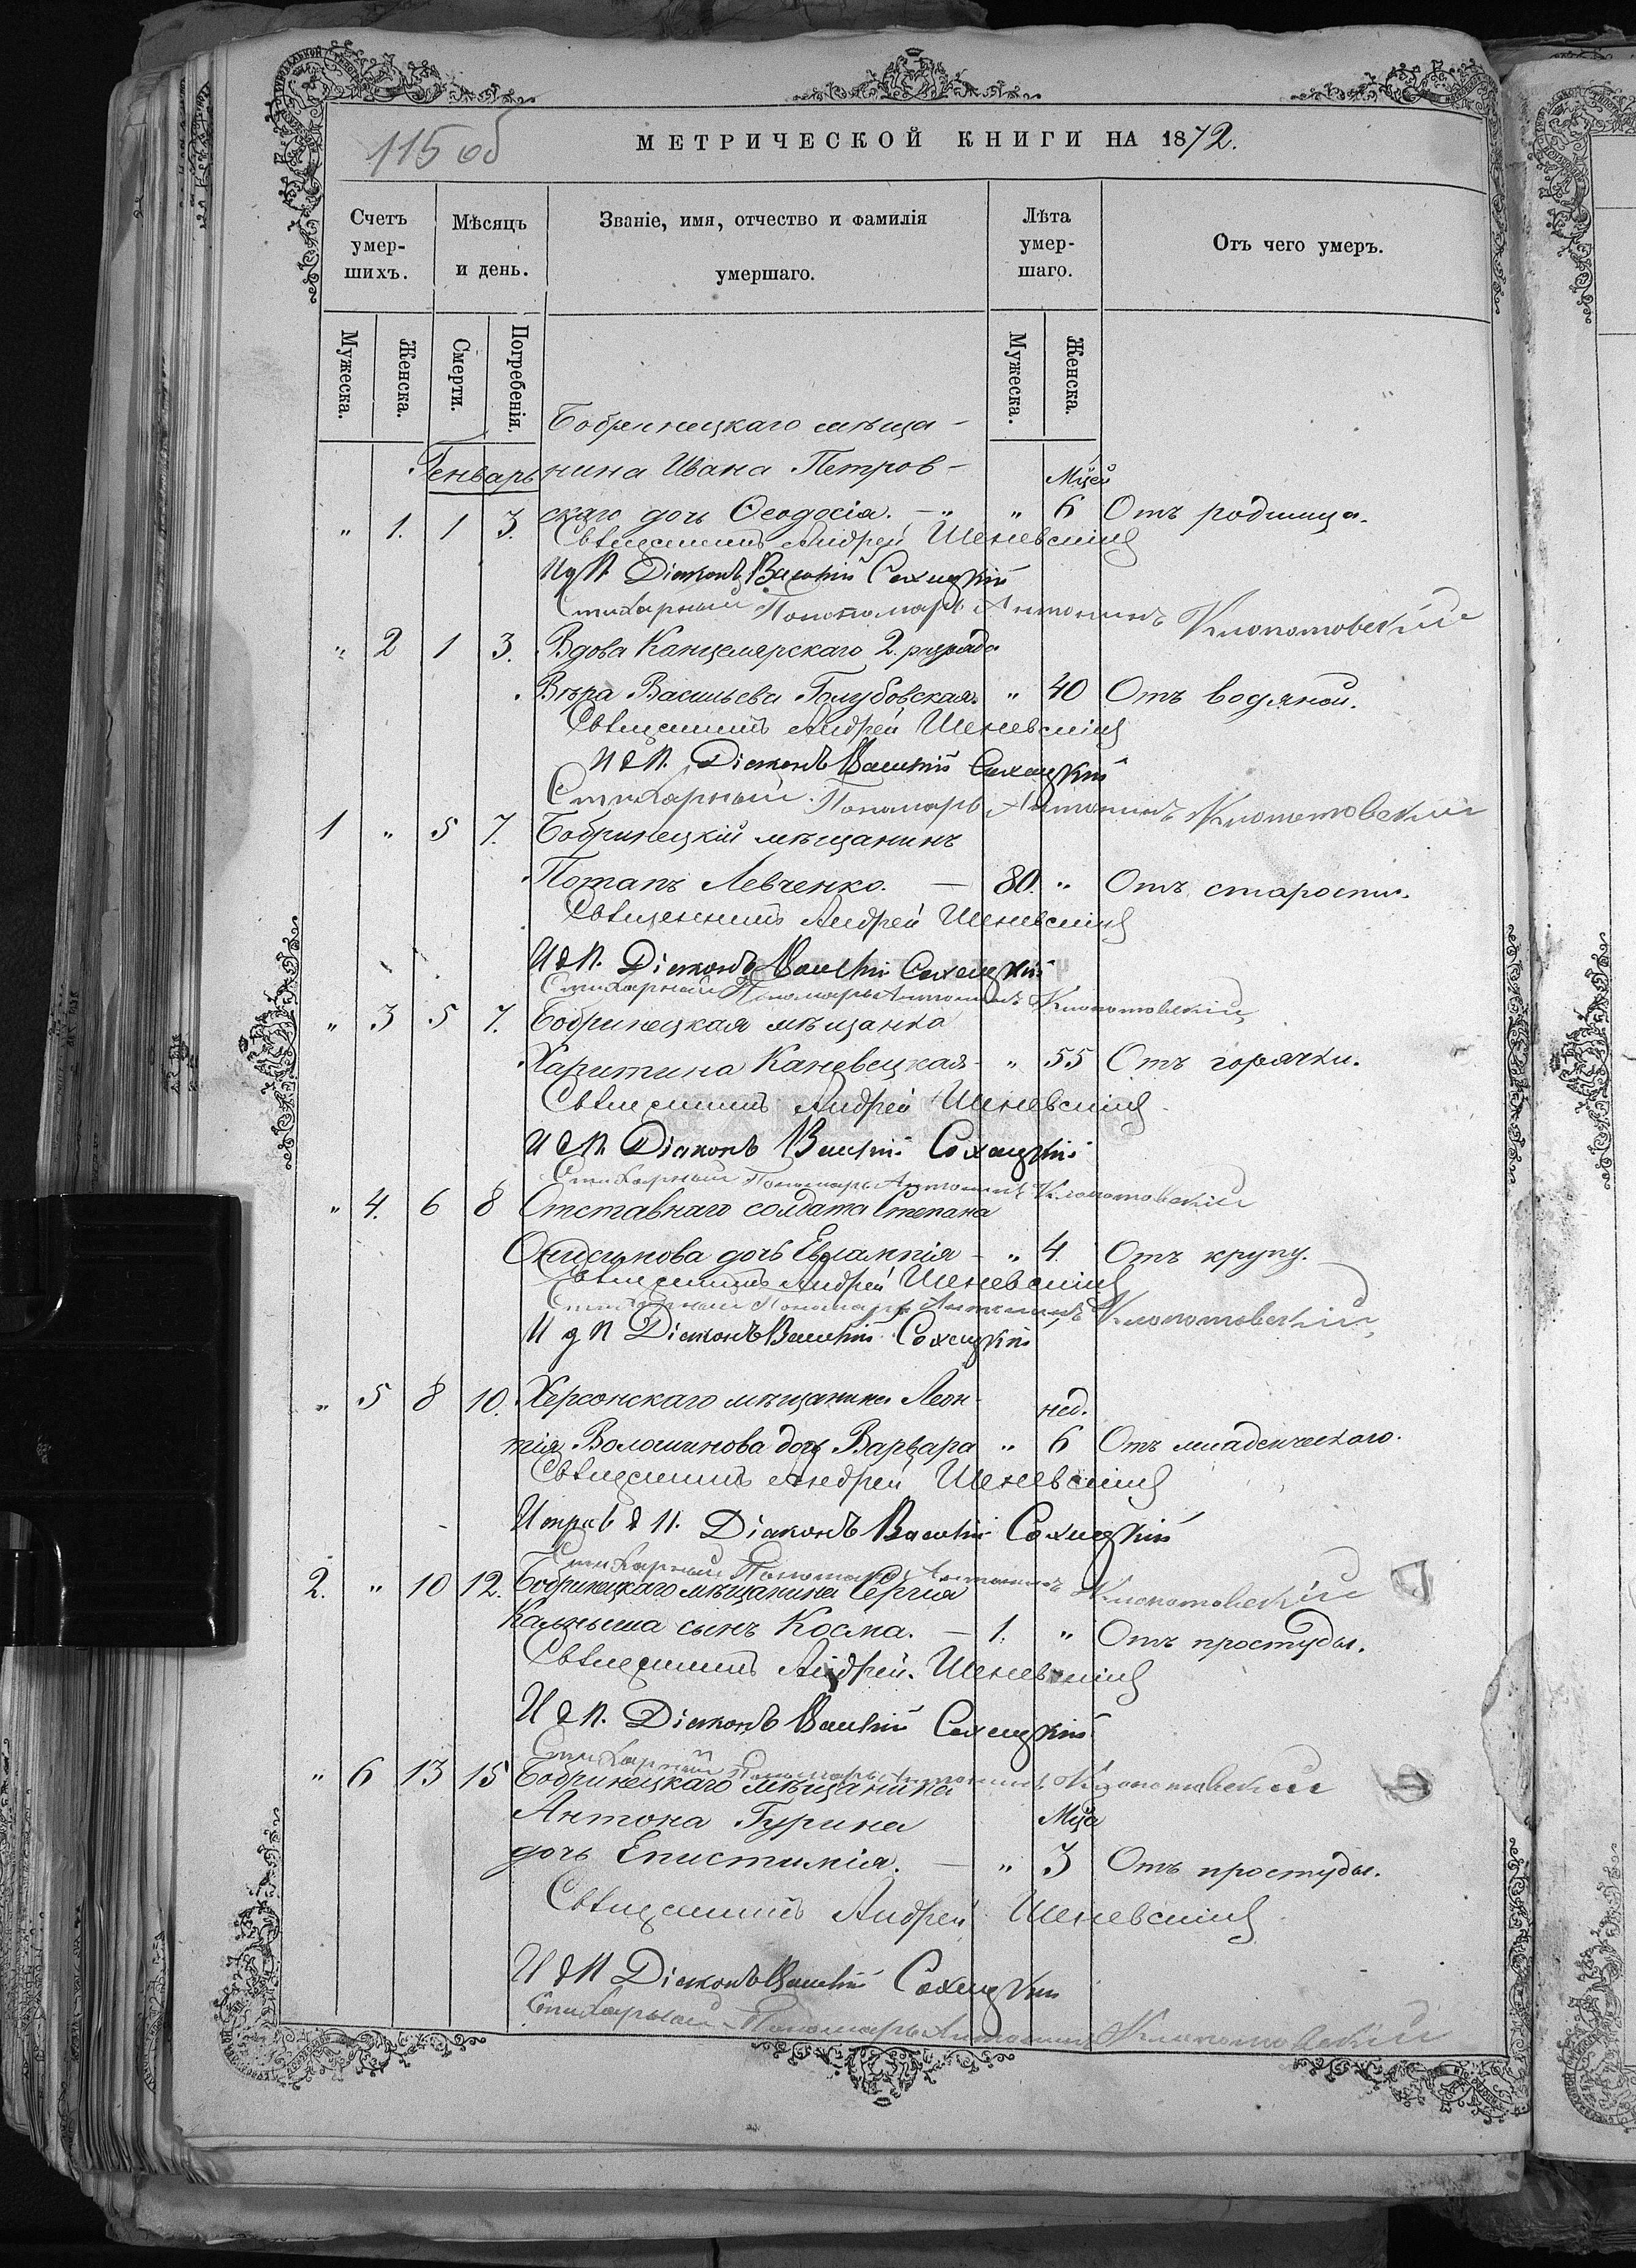 115 об
МЕТРИЧЕСКОЙ КНИГИ НА 1872.
Счетъ умер-шихъ.
Мѣсяцъ и день.
Званіе, имя, отчество и фамилія умершаго.
Лѣта умер-шаго.
Отъ чего умеръ.
Мужеска.
Женска.
Смерти.
Погребенія.
Мужеска.
Женска.
Бобринецкаго мѣща-
Генварь нина Ивана Петров- Мцей
" 1. 1 3. скаго дочь Ѳеодосія. — " " 6 Отъ родимца.
Священникъ Андрей Шеневскій
И д П. Діаконъ Василій Сахацкій
Стихарный Пономарь Антонинъ Клопотовскій
" 2 1 3. Вдова Канцелярскаго 2. разряда
Вѣра Васильева Голубовская. " 40 Отъ водяной.
Священникъ Андрей Шеневскій
И д П. Діаконъ Василій Сахацкій
Стихарный Пономарь Антонинъ Клопотовскій
1 " 5 7. Бобринецкій мѣщанинъ
Потапъ Левченко. — 80. " Отъ старости.
Священникъ Андрей Шеневскій
И д П. Діаконъ Василій Сахацкій
Стихарный Пономарь Антонинъ Клопотовскій
" 3 5 7. Бобринецкая мѣщанка
Харитина Каневецкая - " 55 Отъ горячки.
Священникъ Андрей Шеневскій
И д П. Діаконъ Василій Сахацкій
Стихарный Пономарь Антонинъ Клопотовскій
" 4. 6 8 Отставнаго солдата Степана
дочь Евлампія - " 4. Отъ крупу.
Священникъ Андрей Шеневскій
Стихарный Пономарь Антонинъ Клопотовскій
И д П Діаконъ Василій Сахацкій
" 5 8 10. Херсонскаго мѣщанина Леон- нед.
тія Волошинова дочь Варвара " 6 Отъ младенческаго.
Священникъ Андрей Шеневскій
Исправ д П. Діаконъ Василій Сахацкій
Стихарный Пономарь Антонинъ Клопотовскій
2. " 10 12. Бобринецкаго мѣщанина Сергія
Калныша сынъ Косма. — 1. " Отъ простуды.
Священникъ Андрей Шеневскій
И д П. Діаконъ Василій Сахацкій
Стихарный Пономарь Антонинъ Клопотовскій
" 6 13 15 Бобринецкаго мѣщанина
Антона Гурина Мца
дочь Епистимія. — " 3 Отъ простуды.
Священникъ Андрей Шеневскій
И д П Діаконъ Василій Сахацкій
Стихарный Пономарь Антонинъ Клопотовскій